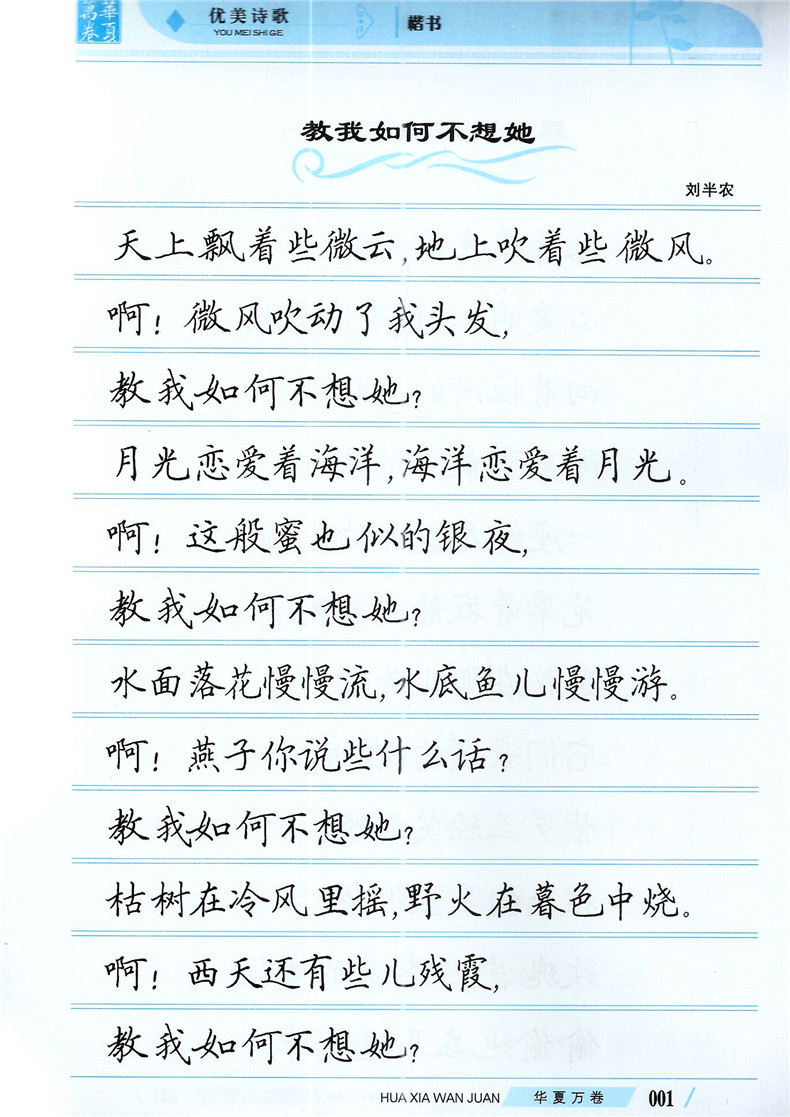 華夏萬卷
优美诗歌
YOU MEI SHI GE
楷书
教我如何不想她
刘半农
天上飘着些微云,地上吹着些微风。
啊!微风吹动了我头发,
教我如何不想她?
月光恋爱着海洋,海洋恋爱着月光。
啊!这般蜜也似的银夜,
教我如何不想她?
水面落花慢慢流,水底鱼儿慢慢游。
啊!燕子你说些什么话?
教我如何不想她?
枯树在冷风里摇,野火在暮色中烧。
啊!西天还有些儿残霞,
教我如何不想她?
HUA XIA WAN JUAN 华夏万卷 001